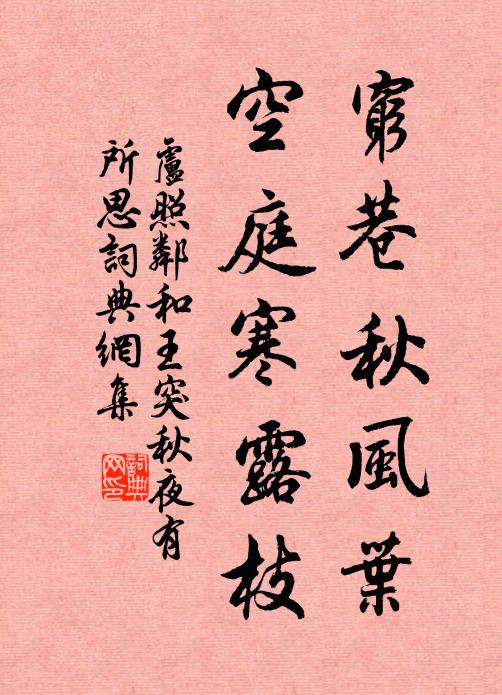 窮巷秋風葉
空庭寒露枝
盧照鄰和王突秋夜有
所思詞典網集
詞典网印